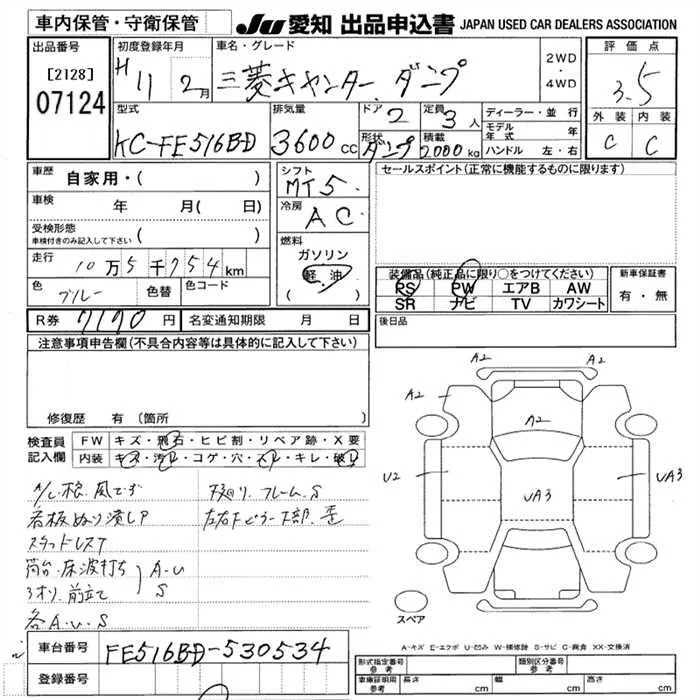 車内保管・守衛保管
JU 愛知 出品申込書 JAPAN USED CAR DEALERS ASSOCIATION
出品番号
[2128]
07124
初度登録年月
H 11 2月
車名・グレード
三菱キャンター ダンプ
2WD
・
4WD
評価点
3.5
外装 内装
C C
型式
KC-FE516BD
排気量
3600cc
ドア
2
定員
3人
形状
ダンプ
積載
2000kg
ディーラー・並行
モデル年式 年
ハンドル 左・右
車歴 自家用・( )
車検 年 月( 日)
受検形態
車検付きのみ記入して下さい ( )
走行 10万5千754km
色 ブルー 色替 色コード
シフト
MT5
冷房
AC
燃料
ガソリン
軽油
セールスポイント(正常に機能するものに限ります)
装備品(純正品に限り○をつけてください)
PS PW エアB AW
SR ナビ TV カワシート
新車保証書
有・無
R券 7170円 名変通知期限 月 日
後日品
注意事項申告欄(不具合内容等は具体的に記入して下さい)
修復歴 有 (箇所
検査員
記入欄
FW キズ・飛石・ヒビ割・リペア跡・X要
内装 キズ・汚レ・コゲ・穴・スレ・キレ・破レ
看板ぬり潰しP
スタッドレスT
荷台・床波打ち
A・U
S
3オリ・前立て
各A.U.S
下廻り.フレーム.S
A2 A2
A2
A2
U2
UA3
UA3
スペア
A-キズ E-エクボ U-凹み W-補修跡 S-サビ C-腐食 XX-交換済
車台番号 FE516BD-530534
登録番号
形式指定番号
参考
類別区分番号
参考
車庫証明用
参考
長さ cm 幅 cm 高さ cm